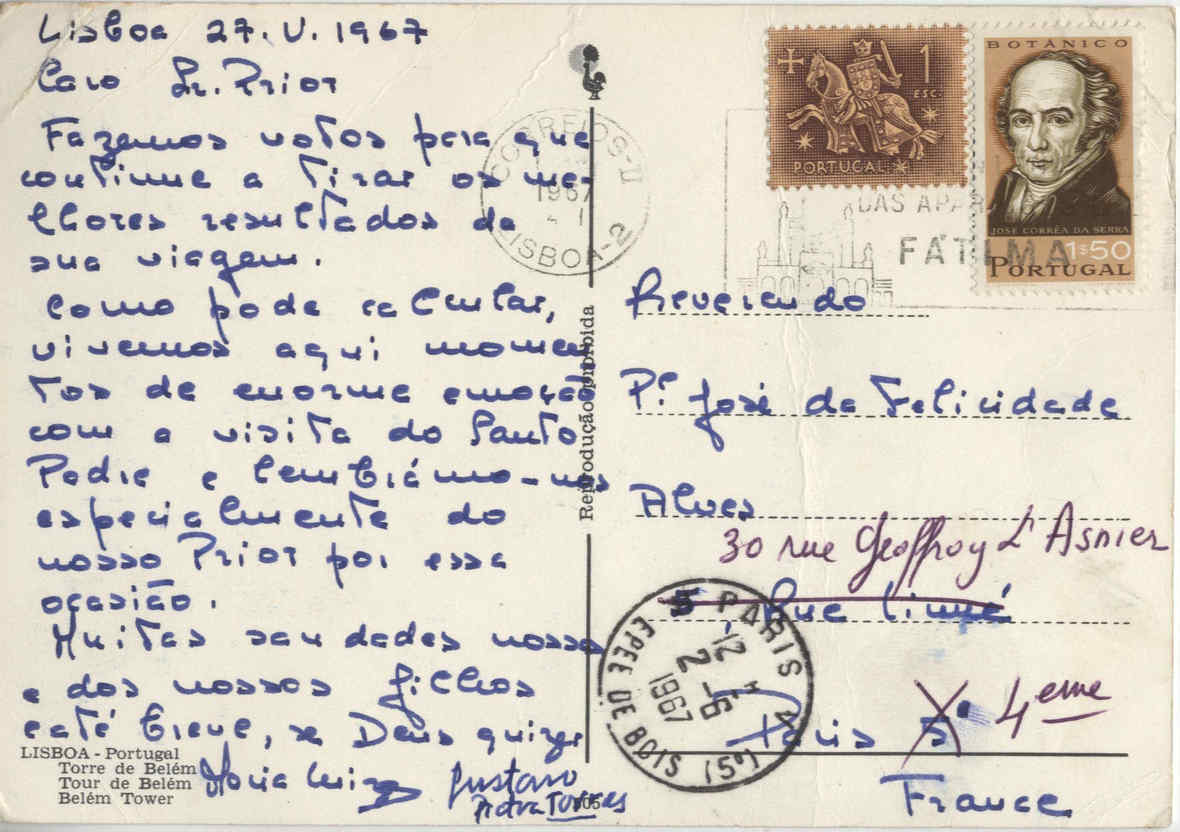 Lisboa 27.V.1967
Caro Sr. Prior
Fazemos votos para que
continue a tirar os me-
lhores resultados da
sua viagem.
Como pode calcular,
vivemos aqui momen
tos de enorme emoção
com a visita do Santo
Padre e lembrámo-nos
especialmente do
nosso Prior por essa
ocasião.
Muitas saudades nossas
e dos nossos filhos
e até breve, se Deus quizer
Maria Luiza Gustavo
Torres
LISBOA - Portugal
Torre de Belém
Tour de Belém
Belém Tower
Reprodução proibida
CORREIOS
1967
LISBOA-2
1
ESC.
PORTUGAL
BOTÂNICO
JOSE CORRÊA DA SERRA
1$50
PORTUGAL
DAS
FÁTIMA
Reverendo
P.e José da Felicidade
Alves
30 rue Geoffroy L'Asnier
5, Rue Linné
Paris 5e 4eme
France
PARIS V
12 H
2 - 6
1967
EPEE DE BOIS (5e)